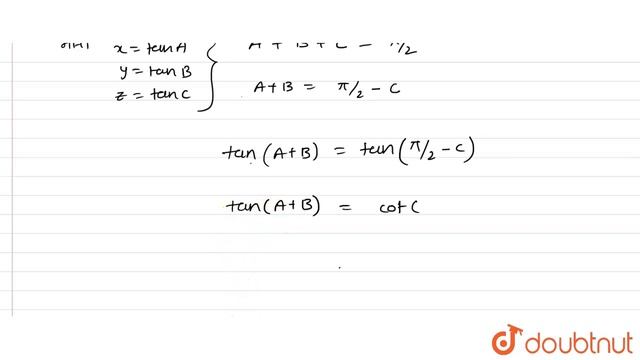 x = tan A
y = tan B
z = tan C
A + B + C = π/2
A + B = π/2 - C
tan (A + B) = tan (π/2 - C)
tan (A + B) = cot C
doubtnut